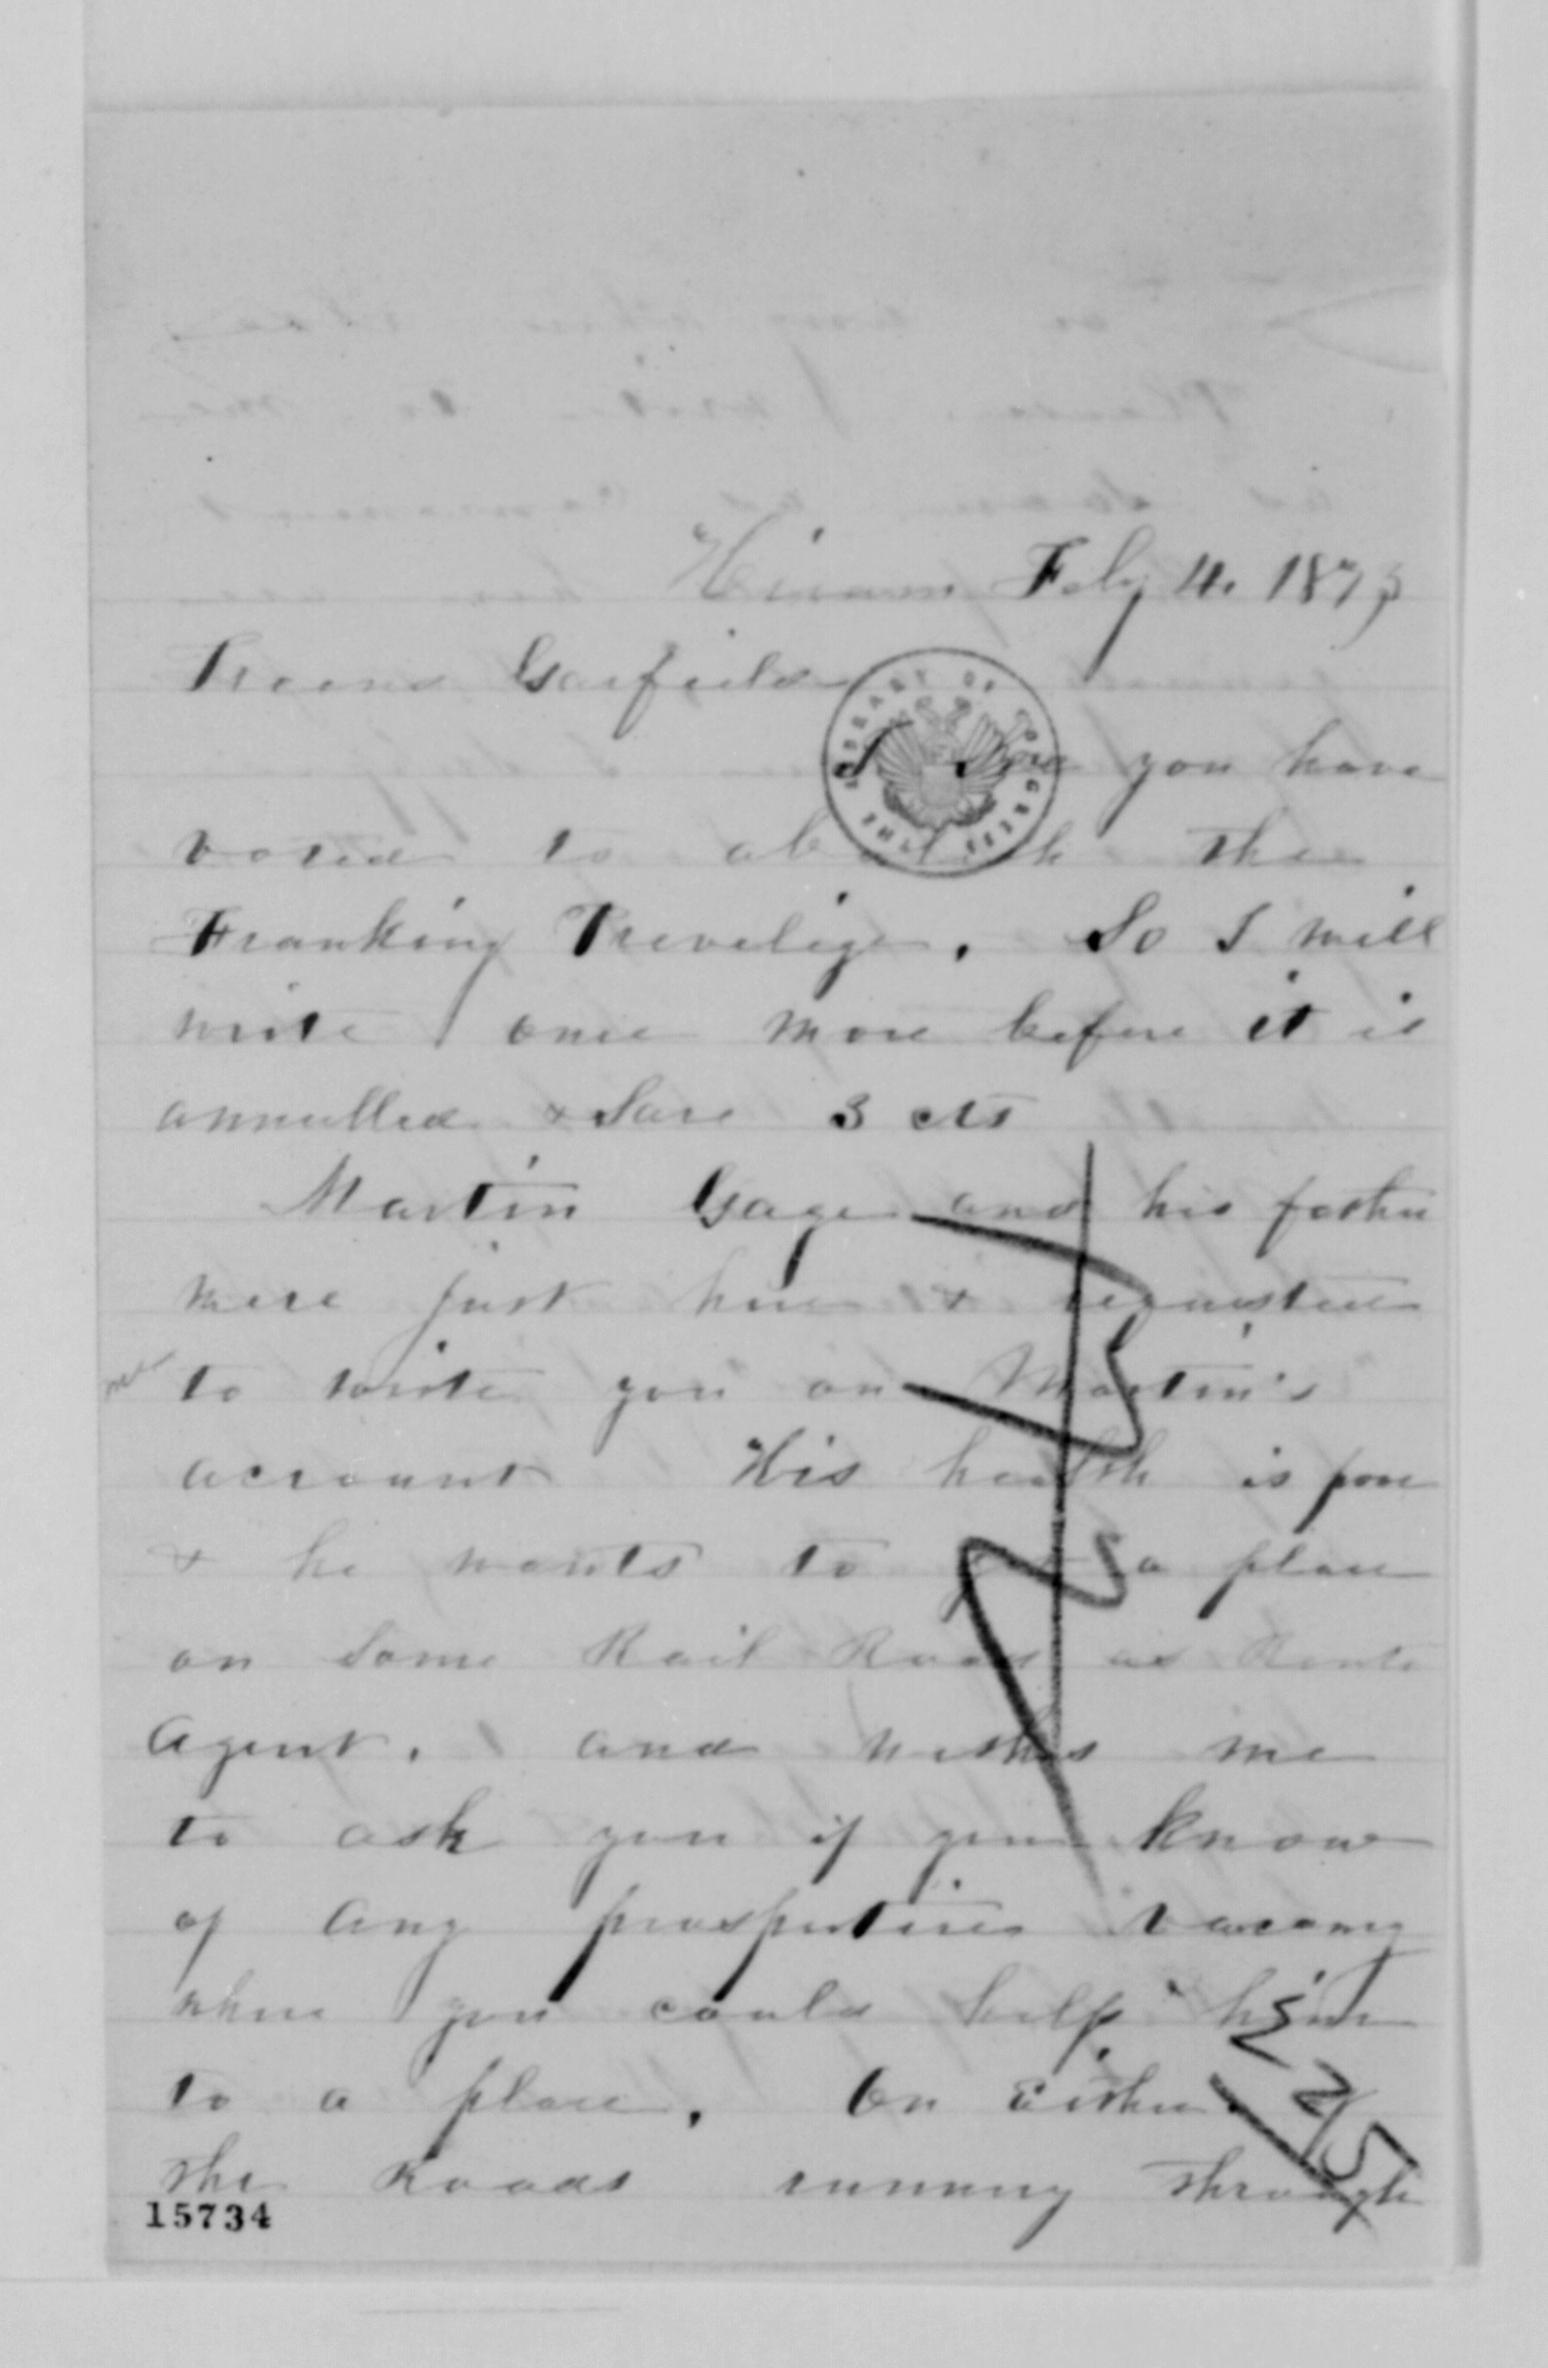 Hiram Feby 4. 1873
Friend Garfield
I see you have
voted to abolish the
Franking Previlige. So I will
write once more before it is
annulled & save 3 cts
Martin Gage and his father
were just here & requested
me to write you on Martin's
account His health is poor
& he wants to get a place
on some Rail Road as Route
Agent. and wishes me
to ask you if you know
of any prospective vacancy
where you could help him
to a place. On Either
the Roads running through
15734
THE LIBRARY OF CONGRESS